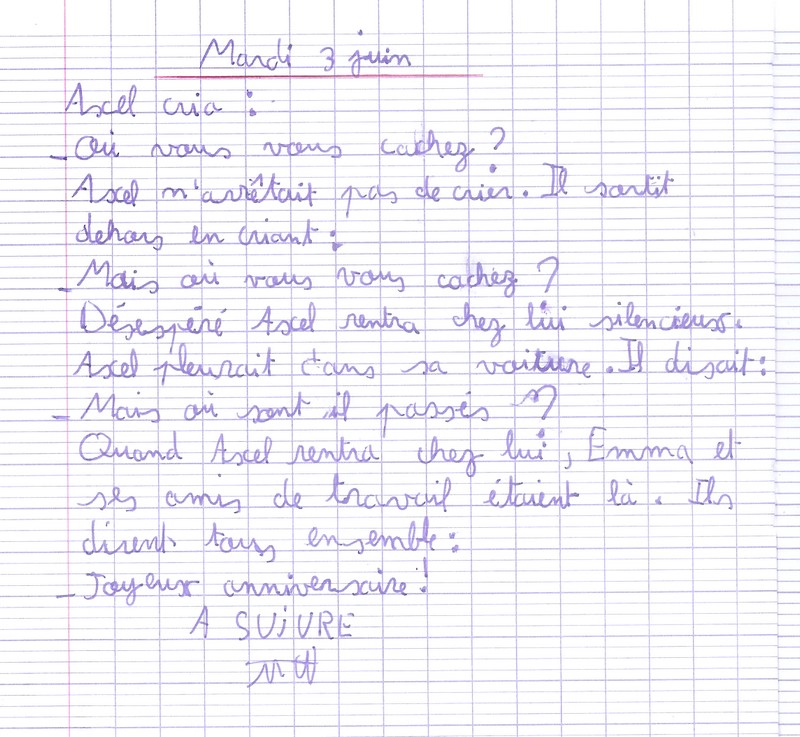 Mardi 3 juin
Axel cria :
_ Où vous vous cachez ?
Axel n'arrêtait pas de crier. Il sortit
dehors en criant :
_ Mais où vous vous cachez ?
Désespéré Axel rentra chez lui silencieux.
Axel pleurait dans sa voiture. Il disait :
_ Mais où sont il passés ?
Quand Axel rentra chez lui, Emma et
ses amis de travail étaient là. Ils
dirent tous ensemble :
_ Joyeux anniversaire !
A SUiVRE